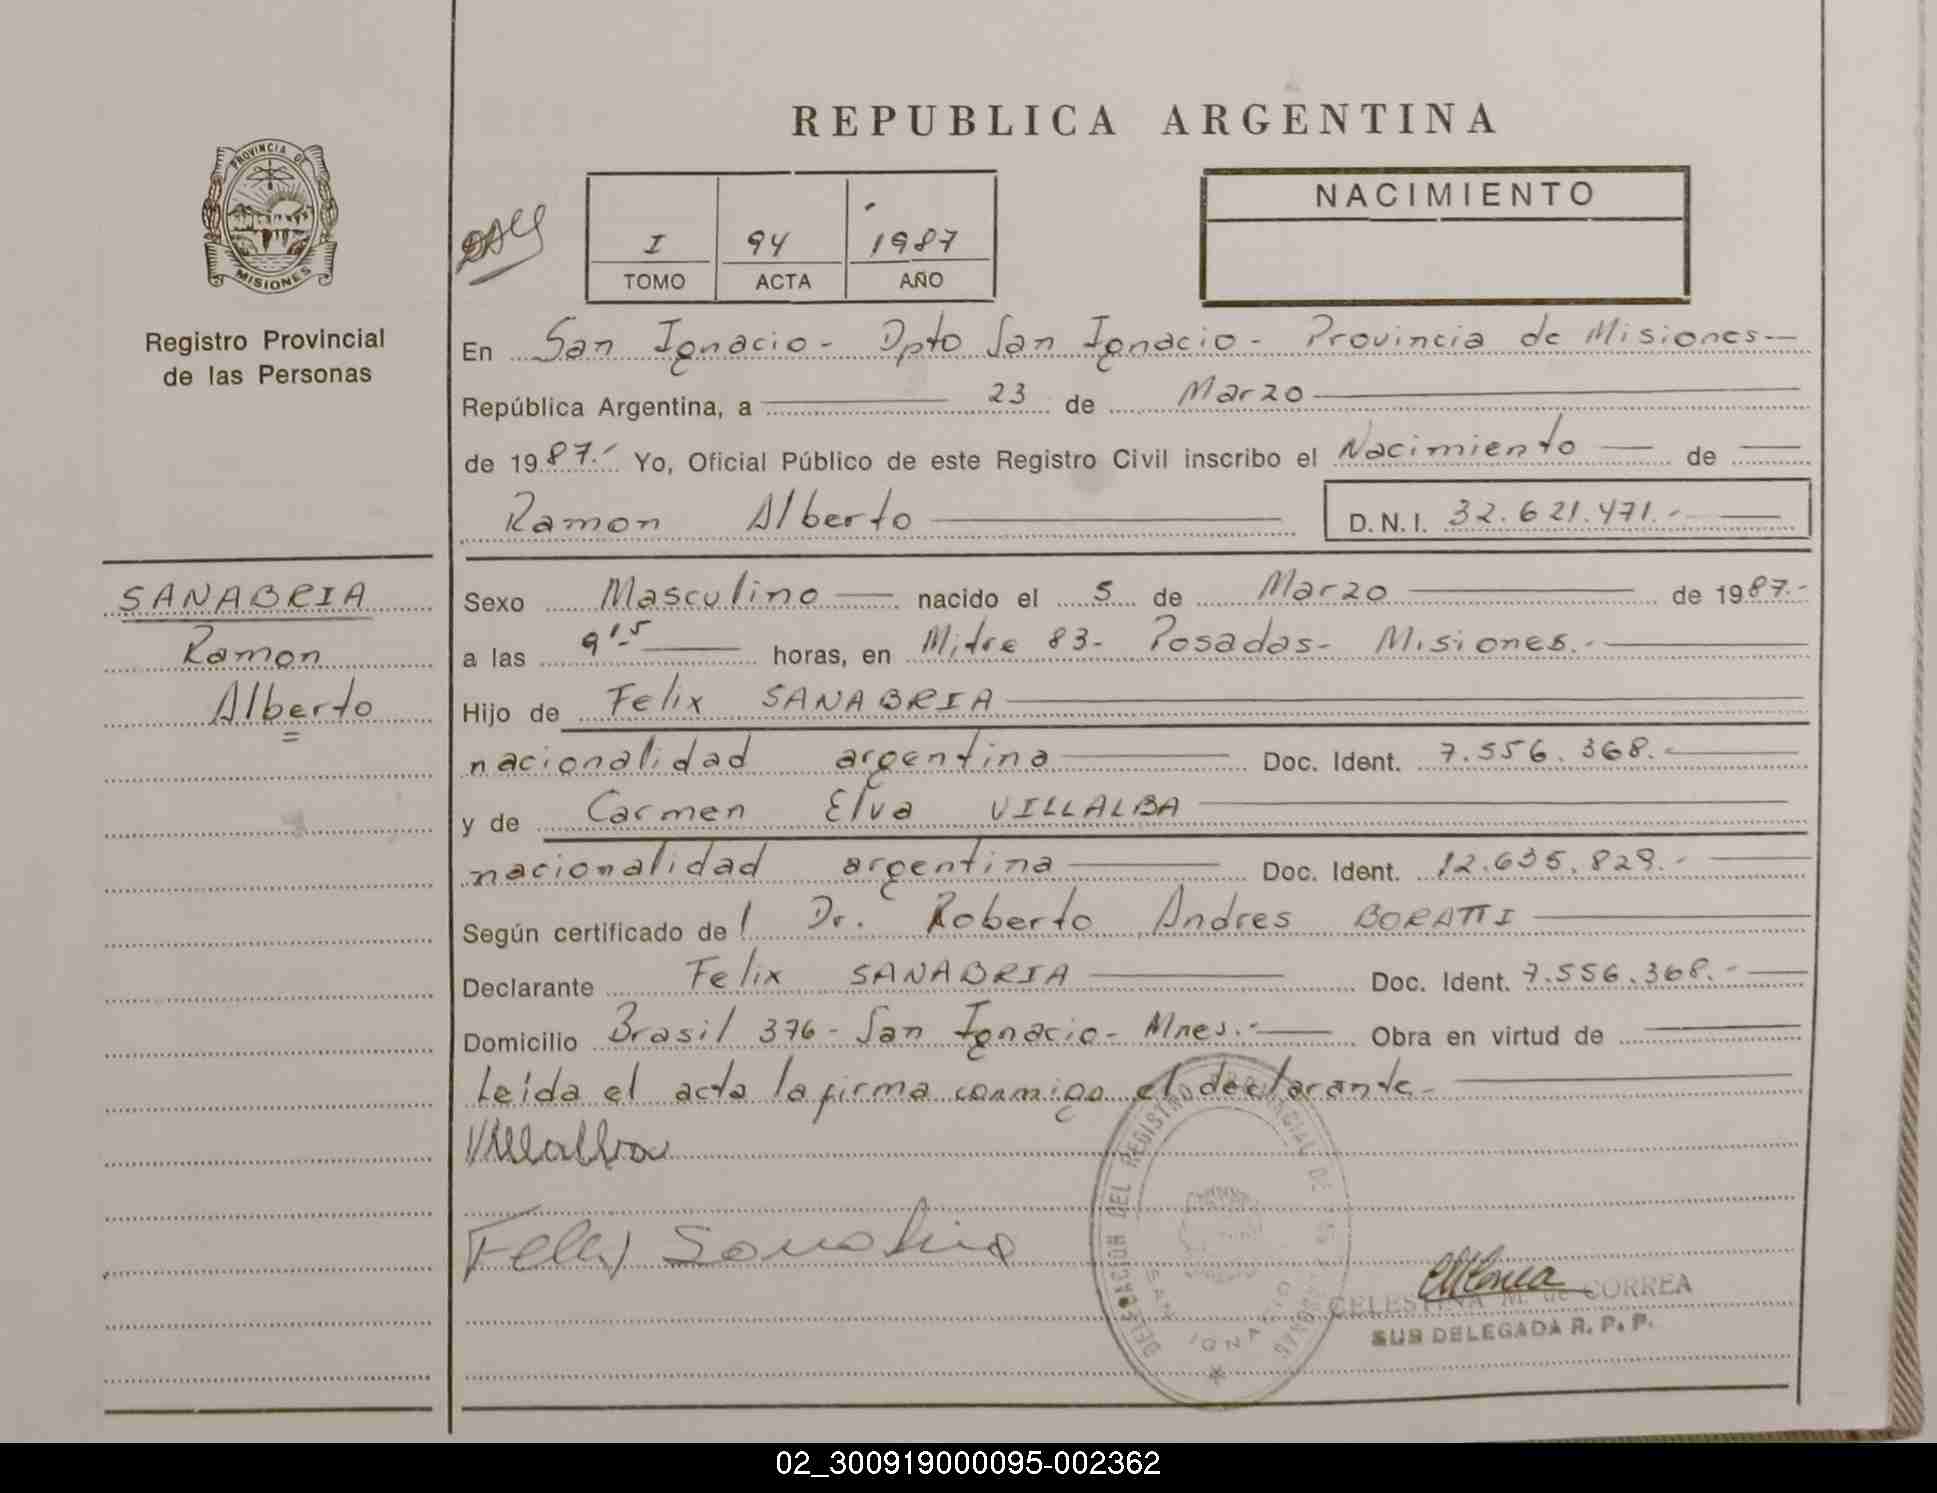 REPUBLICA ARGENTINA
PROVINCIA DE
MISIONES
Registro Provincial
de las Personas
I 94 1987
TOMO ACTA AÑO
NACIMIENTO
En San Ignacio - Dpto San Ignacio - Provincia de Misiones
República Argentina, a 23 de Marzo
de 1987.- Yo, Oficial Público de este Registro Civil inscribo el Nacimiento de
Ramon Alberto D.N.I. 32.621.471.-
SANABRIA
Ramon
Alberto
Sexo Masculino nacido el 5 de Marzo de 1987.-
a las 9'15 horas, en Mitre 83- Posadas- Misiones.-
Hijo de Felix SANABRIA
nacionalidad argentina Doc. Ident. 7.556.368.
y de Carmen Elva VILLALBA
nacionalidad argentina Doc. Ident. 12.635.829.-
Según certificado del Dr. Roberto Andres BORATTI
Declarante Felix SANABRIA Doc. Ident. 7.556.368.-
Domicilio Brasil 376- San Ignacio- Mnes.- Obra en virtud de
Leída el acta la firma conmigo el declarante-
Villalba
Felix Sanabria
DELEGACION DEL REGISTRO PROVINCIAL DE LAS PERSONAS
SAN IGNACIO
CELESTINA M. de CORREA
SUB DELEGADA R. P. P.
02_300919000095-002362